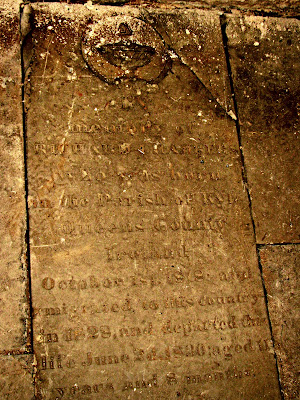 In
memory of
who was born
in the Parish of
Queens County
Ireland
October 1st, and
emigrated, to this country
in 1828, and departed this
life June aged
years and 8 months